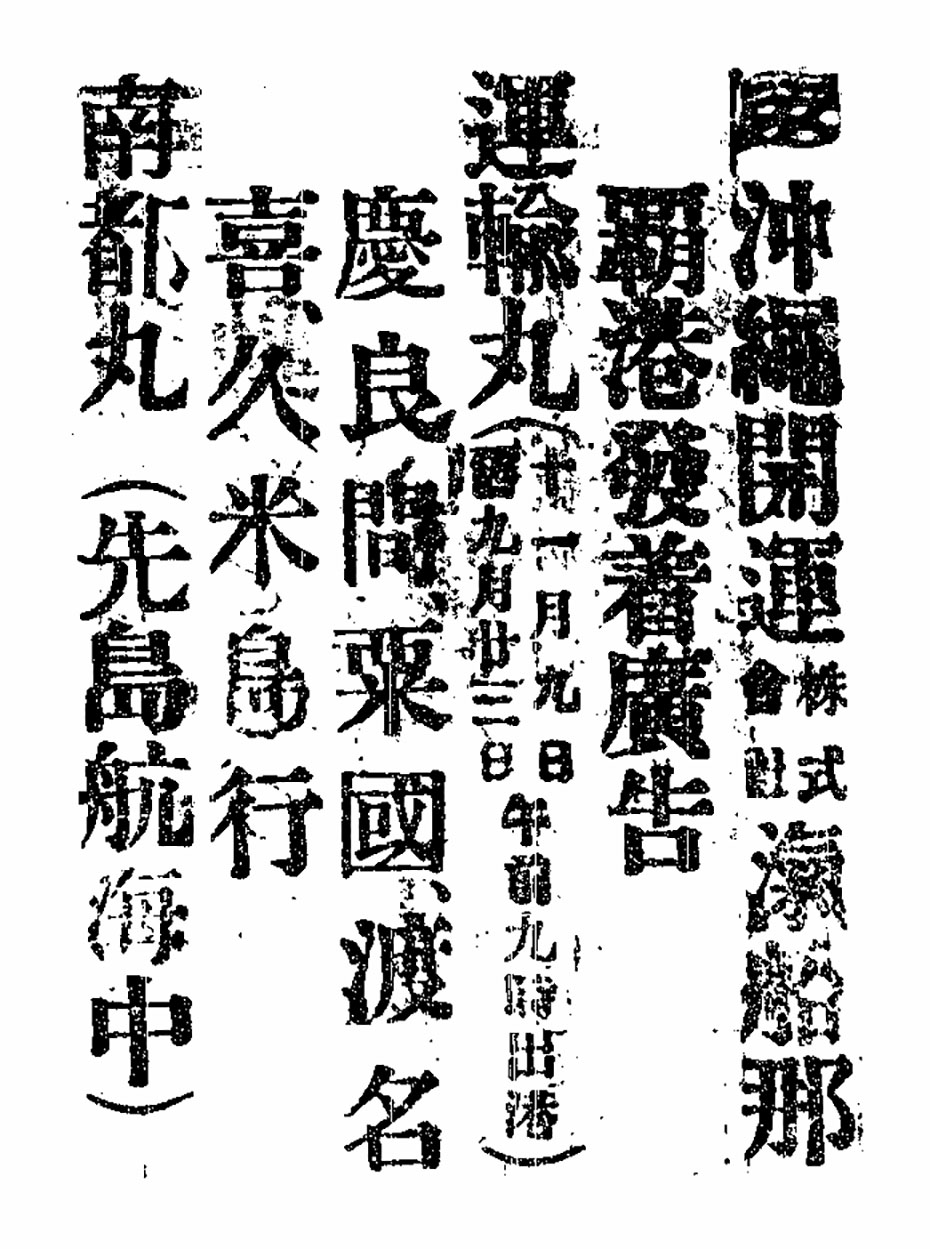 沖繩開運株式會社滊船那
覇港發着廣告
運輸丸（十一月九日舊九月廿三日午前九時出港）
慶良間、粟國、渡名
喜、久米島行
南都丸（先島航海中）